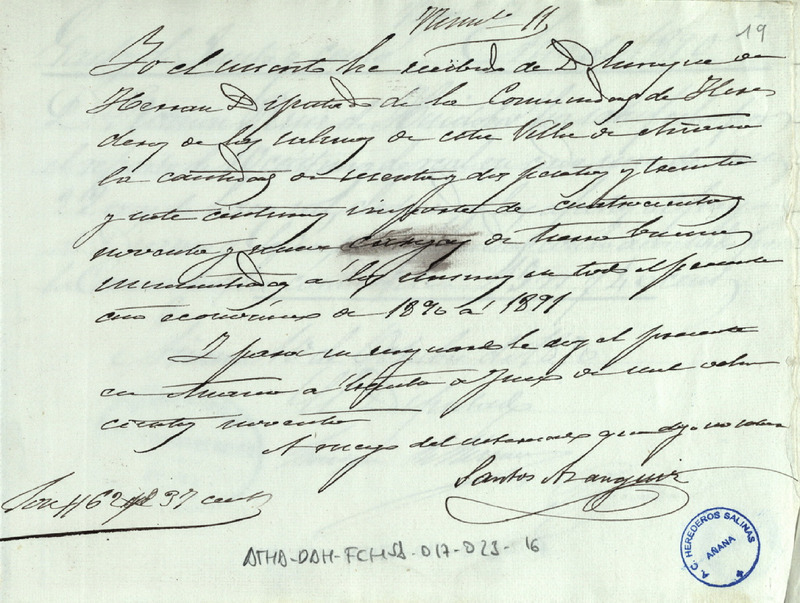 Num.º 11
19
Yo el infrascrito he recibido de D. Enrique de
Herran Diputado de la Comunidad de Here
deros de las salinas de esta Villa de Añana
la cantidad de sesenta y dos pesetas y treinta
y siete centimos importe de cuatrocientos
noventa y nueve cargas de tierra buena
suministradas á los mismos en todo el presente
año económico de 1890 á 1891
Y para su resguardo le doy el presente
en Añana a treinta de Junio de mil ocho
cientos noventa
A ruego del interesado que dijo no saber
Santos Aranguiz
Son # 62 37 cent
ATHA-DAH-FCHSA-017-023-16
A.C. HEREDEROS SALINAS
AÑANA